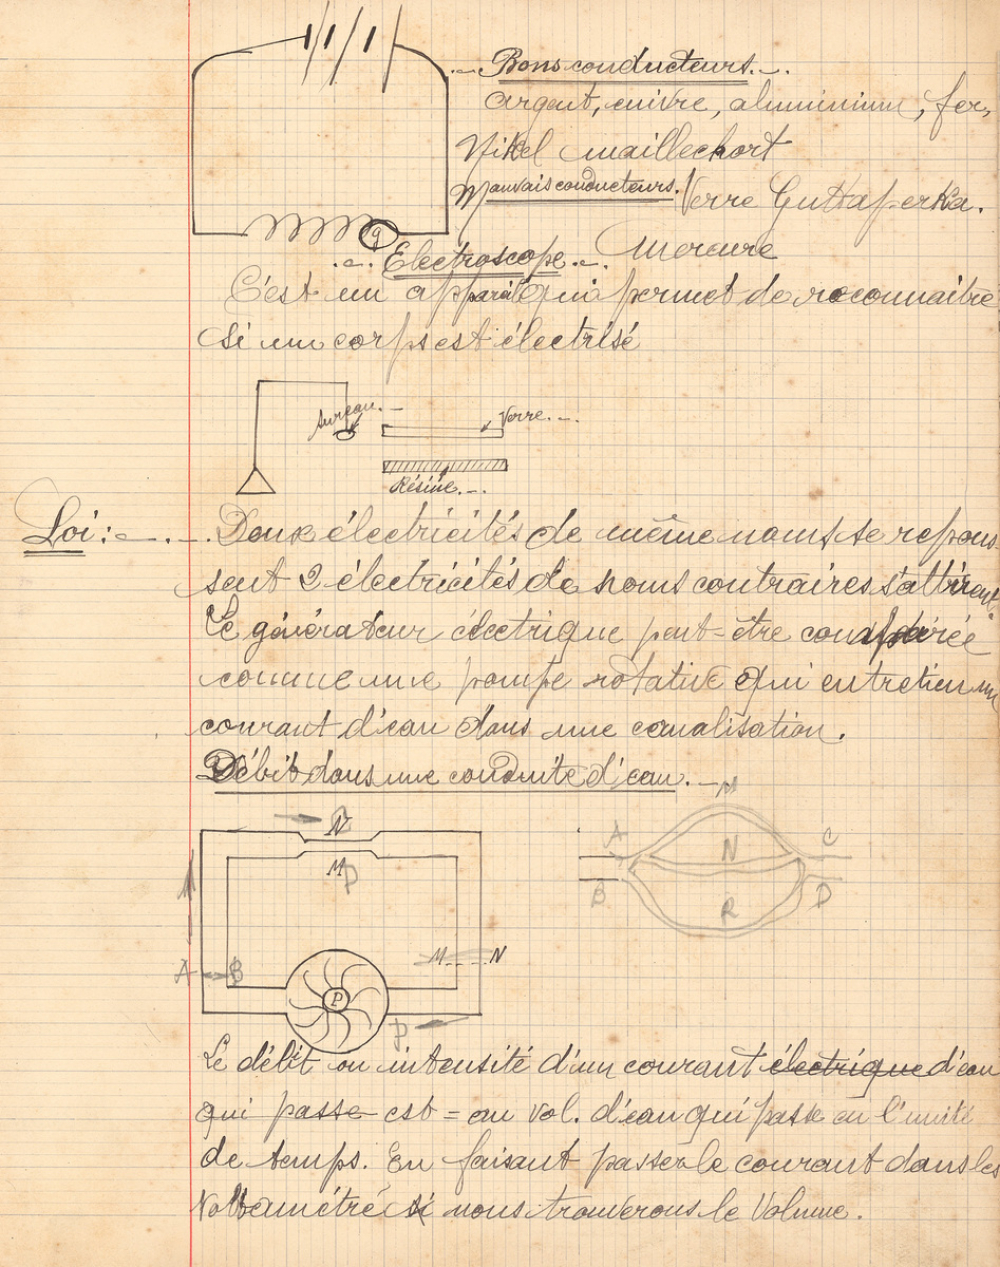 Bons conducteurs.
argent, cuivre, aluminium, fer,
Nikel maillechort
Mauvais conducteurs. Verre Guttaperka.
g
Electroscope. Mercure
C'est un appareil qui permet de reconnaitre
si un corps est électrisé
Sureau.
Verre.
Résine.
Loi: Deux électricités de même noms se repous
sent 2 électricités de noms contraires s'attirent.
Le générateur électrique peut-être comparée
comme une pompe rotative qui entretien un
courant d'eau dans une canalisation.
Débit dans une conduite d'eau.
M
N
A C
N
M
P
B D
R
M N
A B
P
P
Le débit ou intensité d'un courant électrique d'eau
qui passe est = au vol. d'eau qui passe en l'unité
de temps. En faisant passer le courant dans les
Voltamétré si nous trouverons le Volume.